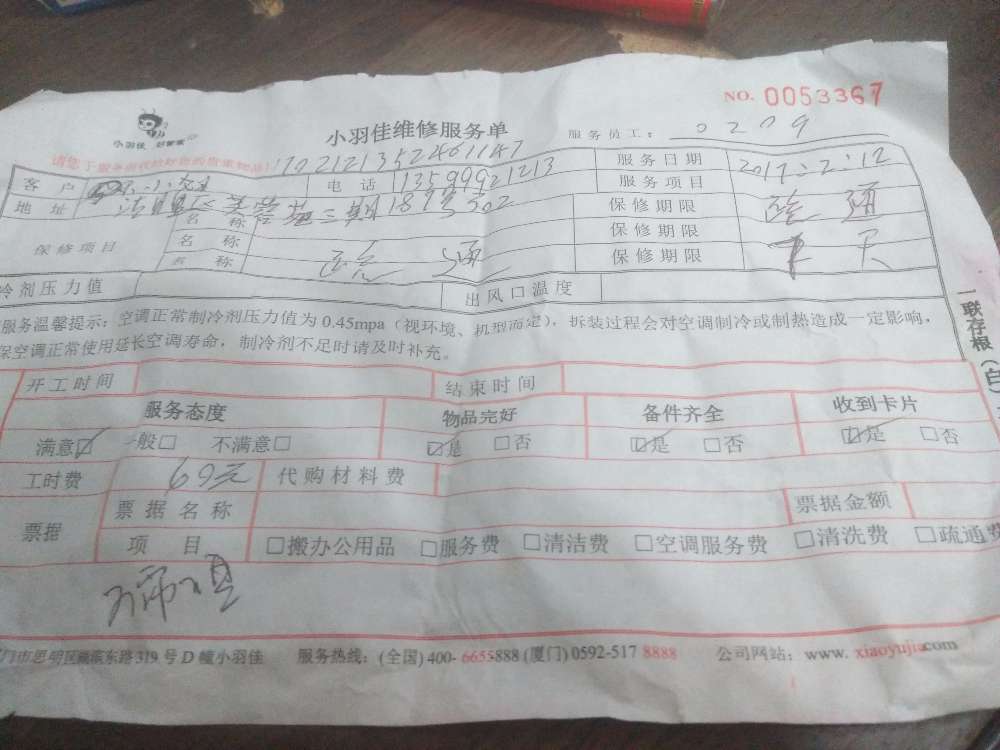 NO. 0053367
小羽佳 好管家
小羽佳维修服务单
服务员工： 0209
请您于服务前收拾好您的贵重物品！
1702121352461147
客户 电话 13599921213 服务日期 2017.2.12
地址 二期 1893 502 服务项目 疏通
名称 保修期限
保修项目 名称 保修期限
名称 疏通 保修期限 天
冷剂压力值 出风口温度
服务温馨提示：空调正常制冷剂压力值为0.45mpa（视环境、机型而定），拆装过程会对空调制冷或制热造成一定影响，
保空调正常使用延长空调寿命，制冷剂不足时请及时补充。
一联存根（白）
开工时间 结束时间
服务态度 物品完好 备件齐全 收到卡片
满意☑ 一般□ 不满意□ ☑是 □否 ☑是 □否 ☑是 □否
工时费 69元 代购材料费
票据 票据名称 票据金额
项目 □搬办公用品 □服务费 □清洁费 □空调服务费 □清洗费 □疏通费
门市思明区 东路319号D幢小羽佳 服务热线：(全国) 400-6655888 (厦门) 0592-517 8888 公司网站：www. xiaoyujia.com